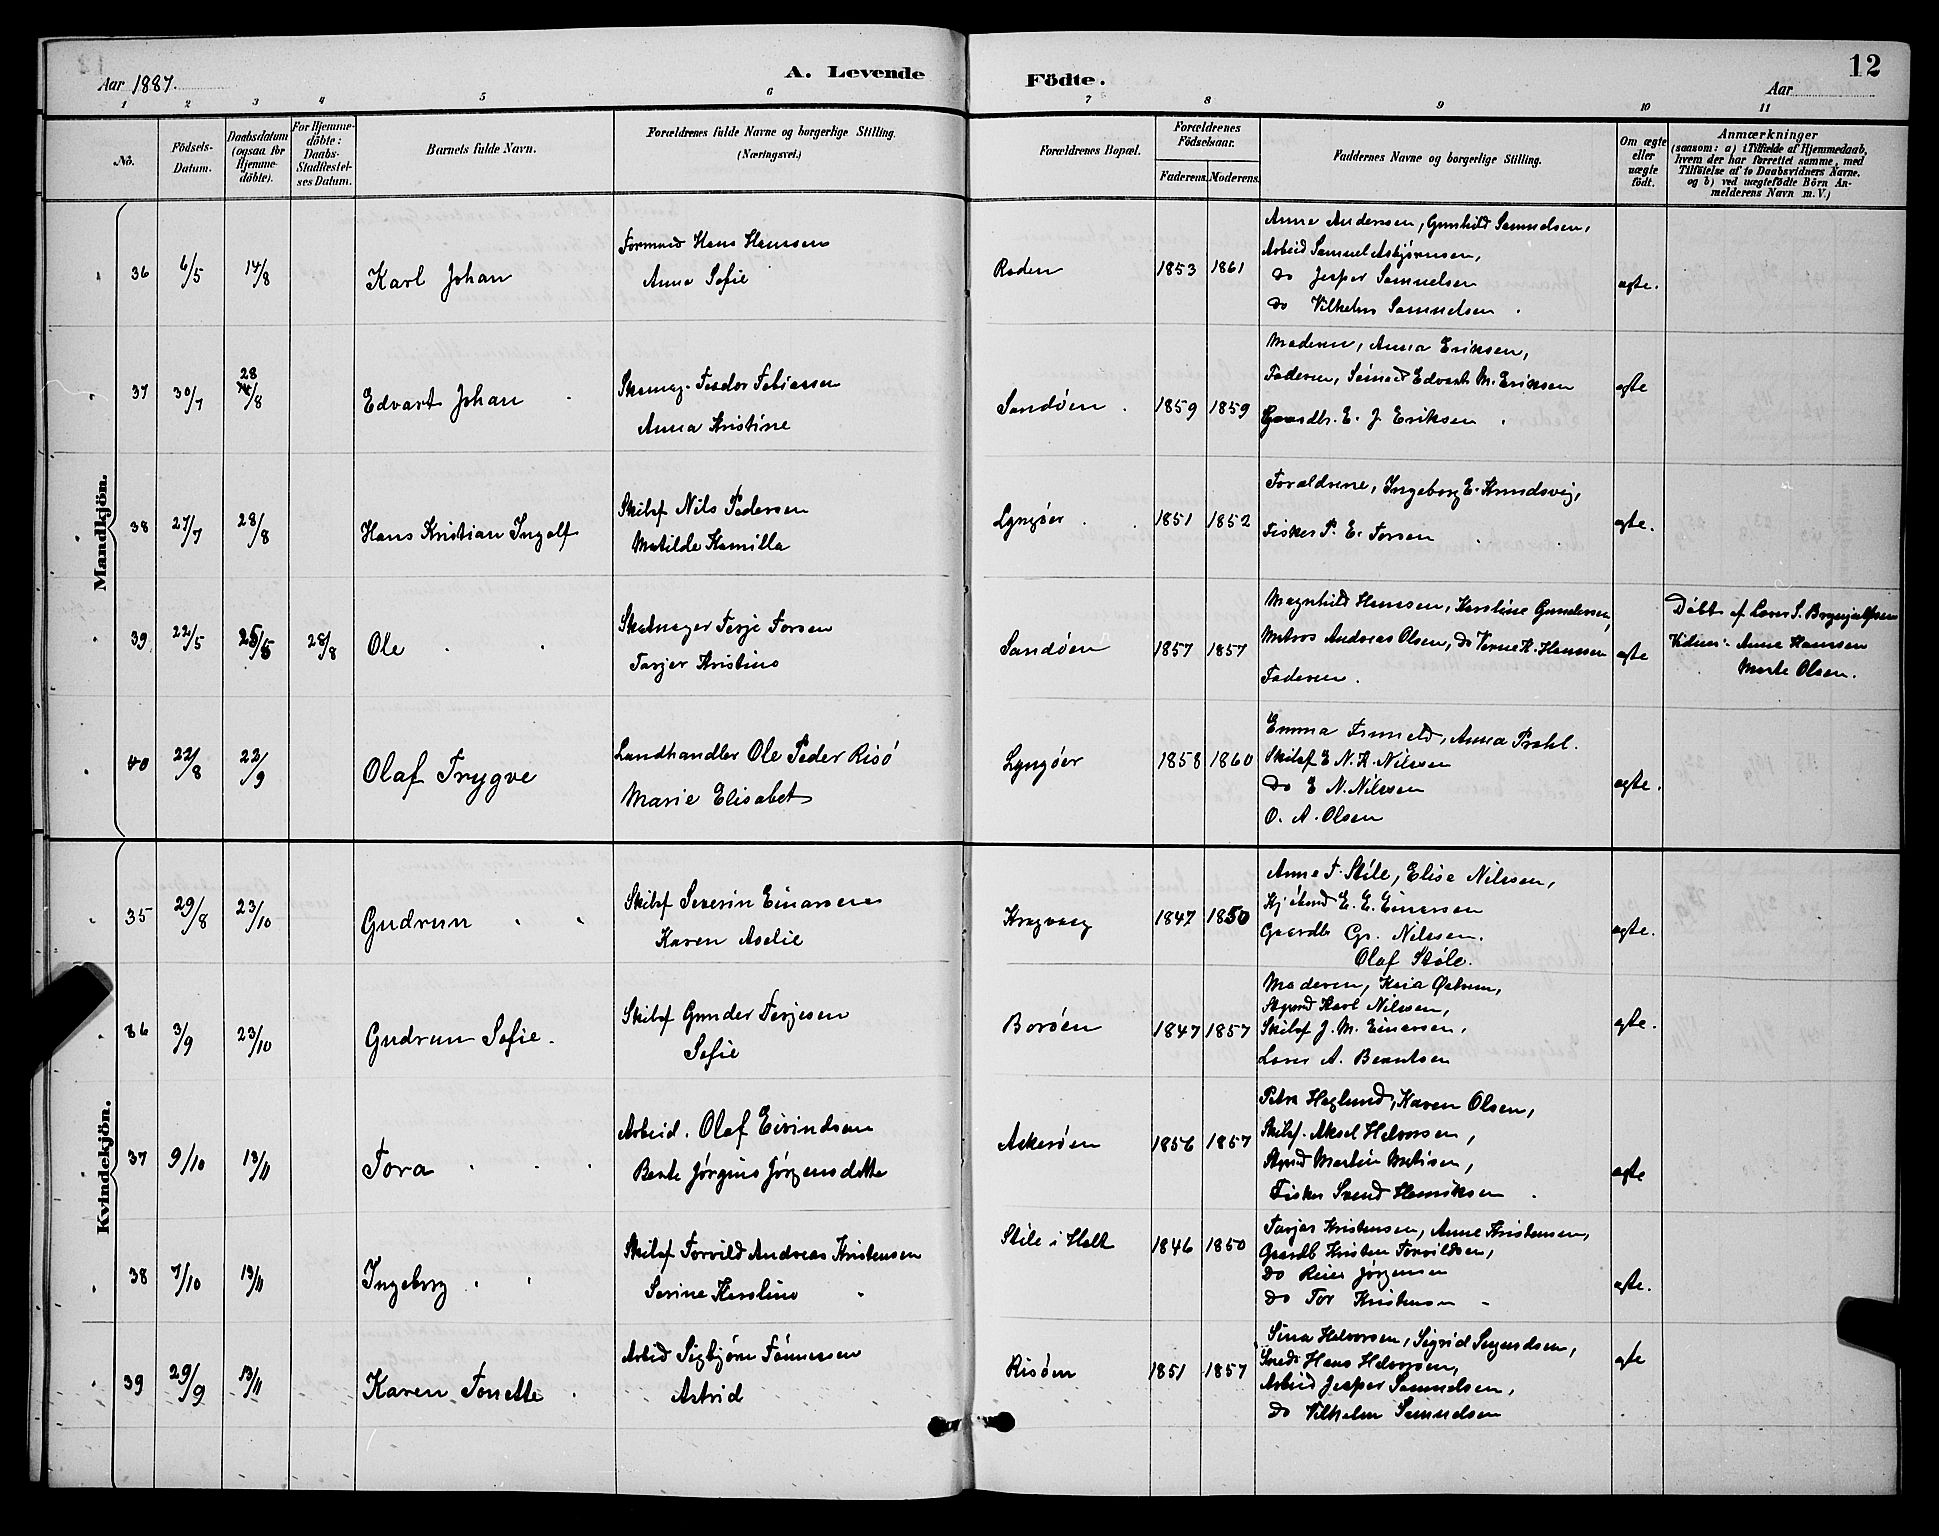 Aar 1887.
A. Levende Födte.
12
Aar
1 2 3 4 5 6 7 8 9 10 11
No.
Födsels-Datum.
Daabsdatum (ogsaa for Hjemme-döbte).
For Hjemme-döbte: Daabs-Stadfæstel-ses Datum.
Barnets fulde Navn.
Forældrenes fulde Navne og borgerlige Stilling.
(Næringsvei.)
Forældrenes Bopæl.
Forældrenes Födselsaar.
Faderens. Moderens.
Faddernes Navne og borgerlige Stilling.
Om ægte eller uægte födt.
Anmærkninger
(saasom: a) i Tilfælde af Hjemmedaab, hvem der har forrettet samme, med Tilföielse af to Daabsvidners Navne. og b) ved uægtefödte Börn An-melderens Navn m. V.)
Mandkjön.
36 6/5 14/8 Karl Johan
Formand Hans Hanssen
Anna Sofie
Roden 1853 1861
Anne Anderssen, Gunhild Samuelsen,
Arbeid Samuel Asbjørnsen,
Do Jesper Samuelsen
Do Vilhelm Samuelsen
ægte.
37 30/7 28/8 Edvart Johan
Skomag. Teodor Tobiassen
Anna Kristine
Sandøen. 1859 1859
Moderen, Anna Eriksen,
Faderen, Sømd Edvart M. Eriksen
Gaardbr. E. J. Eriksen
ægte
38 27/7 28/8 Hans Kristian Ingolf
Skibsf Nils Pedersen
Matilde Kamilla
Lyngøer 1851 1852
Forældrene, Ingeborg E. Knudsvig,
Fisker P. E. Torsen
ægte.
39 22/5 25/5 28/8 Ole
Skatmager Terje Torsen
Tarjer Kristine
Sandøen 1857 1857
Magnhild Hanssen, Karoline Gundersen,
Matros Andreas Olsen, Do Verne K. Hanssen
Faderen.
ægte
Döbt af Lærer S. Brynjulfsen
Vidner: Anne Hanssen
Marte Olsen.
40 22/8 22/9 Olaf Trygve
Landhandler Ole Peder Risö
Marie Elisabet
Lyngøer 1858 1860
Emma, Anna Prahl.
Skibsf E N. K. Nilssen
Do E N. Nilssen
O. A. Olsen
ægte.
Kvindekjön.
35 29/8 23/10 Gudrun
Skibsf Severin Einarsen
Karen Aselie
Kragvaag 1847 1850
Anne T. Støle, Elise Nilssen,
Kjøbmd E. E. Einersen
Gaardb Gr. Nilssen.
Olaf Støle.
ægte.
36 3/9 23/10 Gudrun Sofie.
Skibsf Gunder Terjesen
Sofie
Borøen 1847 1857
Moderen, Kaia Østrem,
Styrmd Karl Nilssen,
Skibsf J. M. Einersen,
Lærer A. Berntsen
ægte.
37 9/10 13/11 Tora
Arbeid. Olaf Eivindsen
Berte Jørgine Jørgensdatte
Askerøen 1856 1857
Petra Heglund, Karen Olsen,
Skibsf. Aksel Halvorsen,
Styrmd Martin Matisen,
Fisker Svend Henriksen
ægte
38 7/10 13/11 Ingeborg
Skibsf Torvild Andreas Kristensen
Serine Karoline
Støle i Holt 1846 1850
Tarjer Kristensen, Anne Kristensen,
Gaardb Kristen Torvildsen,
Do Reier Jørgensen
Do Tor Kristensen
ægte.
39 29/9 13/11 Karen Tonette.
Arbeid Sigbjørn Tønnessen
Astrid
Risøen 1851 1857
Sina Halvorsen, Sigrid Sigurdsen,
Smed Hans Halvorsen,
Arbeid Jesper Samuelsen,
Do Vilhelm Samuelsen
ægte